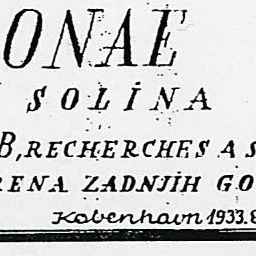 ONAE
SOLINA
B, RECHERCHES A S
RENA ZADNJIH GO
Kobenhavn 1933.